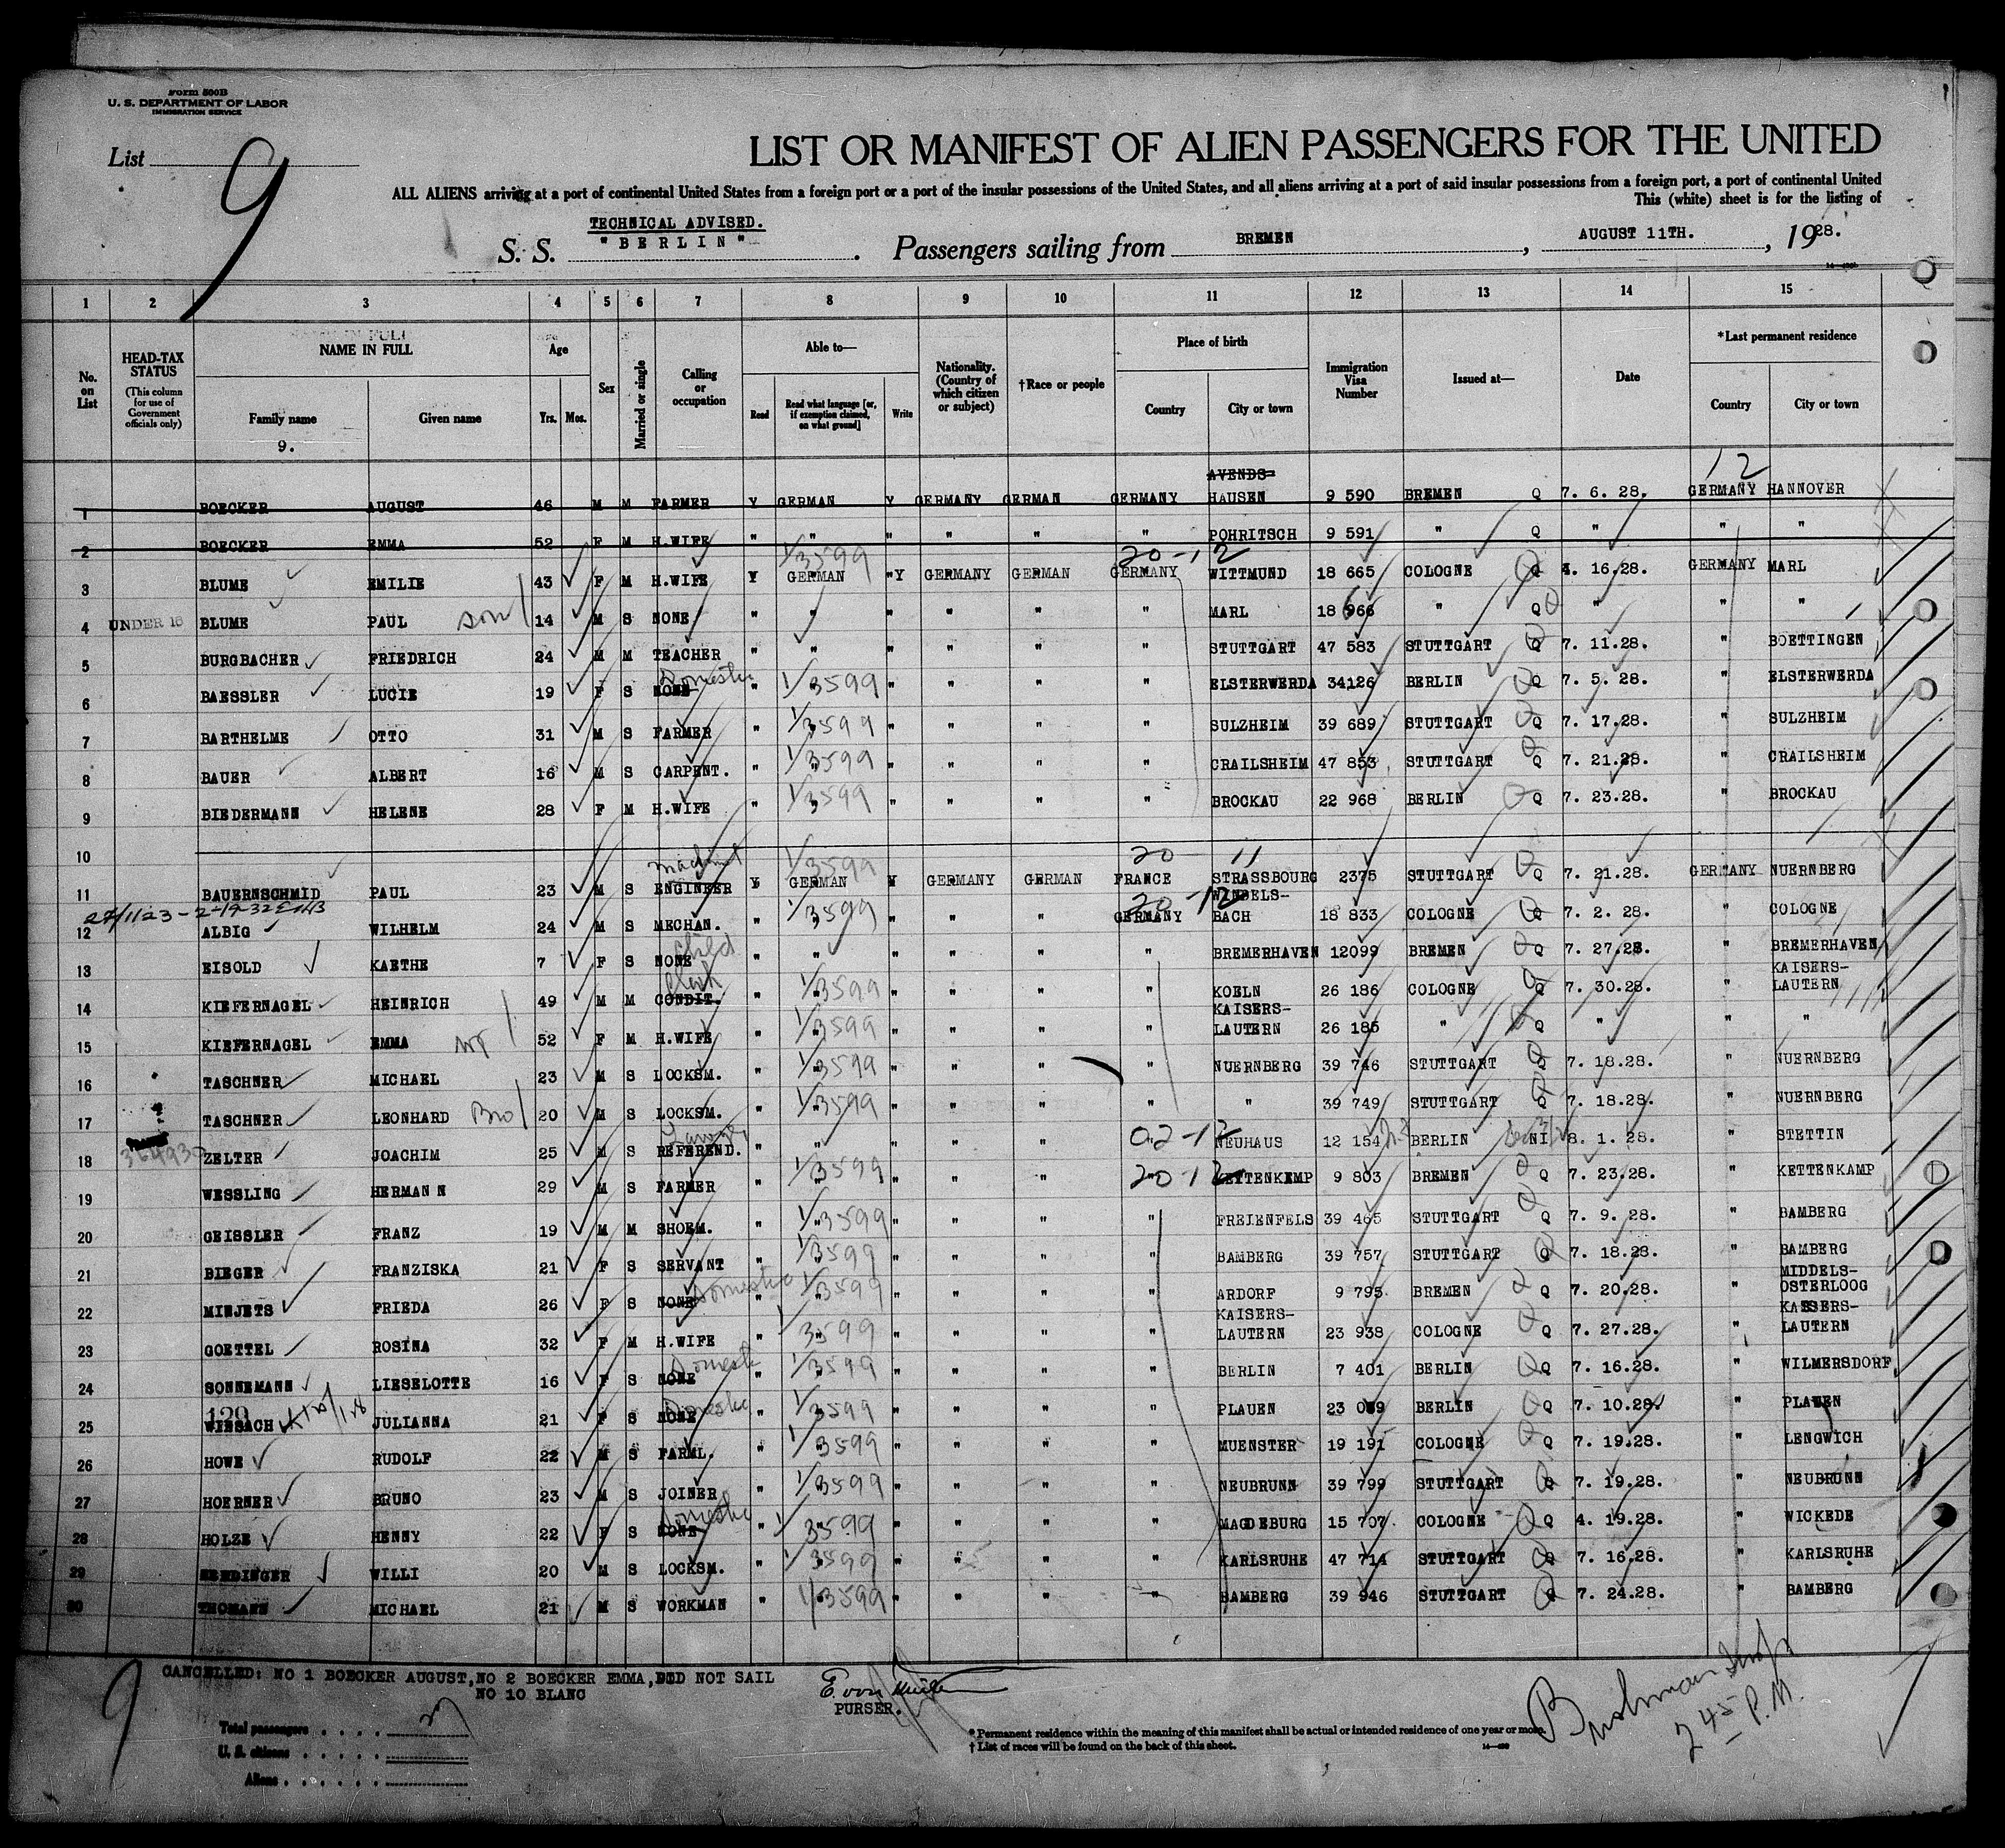 Form 500B
U. S. DEPARTMENT OF LABOR
IMMIGRATION SERVICE
List 9
LIST OR MANIFEST OF ALIEN PASSENGERS FOR THE UNITED
ALL ALIENS arriving at a port of continental United States from a foreign port or a port of the insular possessions of the United States, and all aliens arriving at a port of said insular possessions from a foreign port, a port of continental United
This (white) sheet is for the listing of
TECHNICAL ADVISED.
S. S. "BERLIN". Passengers sailing from BREMEN, AUGUST 11TH., 1928.
1 2 3 4 5 6 7 8 9 10 11 12 13 14 15
No. on List
HEAD-TAX STATUS (This column for use of Government officials only)
NAME IN FULL Family name Given name
9.
Age Yrs. Mos.
Sex
Married or single
Calling or occupation
Able to— Read Read what language [or, if exemption claimed, on what ground] Write
Nationality. (Country of which citizen or subject)
†Race or people
Place of birth Country City or town
Immigration Visa Number
Issued at—
Date
*Last permanent residence Country City or town
12
1 BOECKER AUGUST 46 M M FARMER Y GERMAN Y GERMANY GERMAN GERMANY AVENDS- HAUSEN 9 590 BREMEN Q 7. 6. 28. GERMANY HANNOVER
2 BOECKER EMMA 52 F M H.WIFE " " " " " " POHRITSCH 9 591 " Q " " "
1/3599 20-12
3 BLUME EMILIE 43 F M H.WIFE Y GERMAN "Y GERMANY GERMAN GERMANY WITTMUND 18 665 COLOGNE Q 4. 16.28. GERMANY MARL
4 UNDER 16 BLUME PAUL son 14 M S NONE " " " " " " MARL 18 666 " Q " " "
5 BURGBACHER FRIEDRICH 24 M M TEACHER " " " " " " STUTTGART 47 583 STUTTGART Q 7. 11.28. " BOETTINGEN
6 BAESSLER LUCIE 19 F S NONE Domestic " " 1/3599 " " " " ELSTERWERDA 34126 BERLIN Q 7. 5. 28. " ELSTERWERDA
7 BARTHELME OTTO 31 M S FARMER " " 1/3599 " " " " SULZHEIM 39 689 STUTTGART Q 7. 17.28. " SULZHEIM
8 BAUER ALBERT 16 M S CARPENT. " " 1/3599 " " " " CRAILSHEIM 47 853 STUTTGART Q 7. 21.28. " CRAILSHEIM
9 BIEDERMANN HELENE 28 F M H.WIFE " " 1/3599 " " " " BROCKAU 22 968 BERLIN Q 7. 23.28. " BROCKAU
10
1/3599 20 11
11 BAUERNSCHMID PAUL 23 M S ENGINEER Machinist Y GERMAN Y GERMANY GERMAN FRANCE STRASSBOURG 2375 STUTTGART Q 7. 21.28. GERMANY NUERNBERG
20-12
12 ALBIG WILHELM 24 M S MECHAN. " " 1/3599 " " " GERMANY WINDELS- BACH 18 833 COLOGNE Q 7. 2. 28. " COLOGNE
13 EISOLD KAETHE 7 F S NONE Child " " " " " " BREMERHAVEN 12099 BREMEN Q 7. 27.28. " BREMERHAVEN
14 KIEFERNAGEL HEINRICH 49 M M CONDIT. Clerk " " 1/3599 " " " " KOELN 26 186 COLOGNE Q 7. 30.28. " KAISERS- LAUTERN
15 KIEFERNAGEL EMMA wf 52 F M H.WIFE " " 1/3599 " " " " KAISERS- LAUTERN 26 185 " Q " " "
16 TASCHNER MICHAEL 23 M S LOCKSM. " " 1/3599 " " " NUERNBERG 39 746 STUTTGART Q 7. 18.28. " NUERNBERG
17 TASCHNER LEONHARD Bro 20 M S LOCKSM. " " 1/3599 " " " " " 39 749 STUTTGART Q 7. 18.28. " NUERNBERG
18 ZELTER JOACHIM 25 M S REFEREND. Lawyer " " " " " 02-12 NEUHAUS 12 154 BERLIN NI 8. 1. 28. " STETTIN
19 WESSLING HERMANN 29 M S FARMER " " 1/3599 " " " " 20-12 KETTENKEMP 9 803 BREMEN Q 7. 23.28. " KETTENKAMP
20 GEISSLER FRANZ 19 M M SHOEM. " " 1/3599 " " " " FREIENFELS 39 465 STUTTGART Q 7. 9. 28. " BAMBERG
21 BIEGER FRANZISKA 21 F S SERVANT " " 1/3599 " " " " BAMBERG 39 757 STUTTGART Q 7. 18.28. " BAMBERG
22 MINJETS FRIEDA 26 F S NONE Domestic " " 1/3599 " " " " ARDORF 9 795 BREMEN Q 7. 20.28. " MIDDELS- OSTERLOOG
23 GOETTEL ROSINA 32 F M H.WIFE " " 1/3599 " " " " KAISERS- LAUTERN 23 938 COLOGNE Q 7. 27.28. " KAISERS- LAUTERN
24 SONNEMANN LIESELOTTE 16 F S NONE Domestic " " 1/3599 " " " " BERLIN 7 401 BERLIN Q 7. 16.28. " WILMERSDORF
129
25 WIESACH JULIANNA 21 F S NONE Domestic " " 1/3599 " " " " PLAUEN 23 089 BERLIN Q 7. 10.28. " PLAUEN
26 HOWE RUDOLF 22 M S FARML. " " 1/3599 " " " " MUENSTER 19 191 COLOGNE Q 7. 19.28. " LENGWICH
27 HOERNER BRUNO 23 M S JOINER " " 1/3599 " " " " NEUBRUNN 39 799 STUTTGART Q 7. 19.28. " NEUBRUNN
28 HOLZE HENNY 22 F S NONE Domestic " " 1/3599 " " " " MAGDEBURG 15 707 COLOGNE Q 4. 19.28. " WICKEDE
29 WILLI 20 M S LOCKSM. " " 1/3599 " " " " KARLSRUHE 47 714 STUTTGART Q 7. 16.28. " KARLSRUHE
30 THOMANN MICHAEL 21 M S WORKMAN " 1/3599 " " " " BAMBERG 39 946 STUTTGART Q 7. 24.28. " BAMBERG
CANCELLED: NO 1 BOECKER AUGUST, NO 2 BOECKER EMMA, DID NOT SAIL
NO 10 BLANC
PURSER.
9
Total passengers
U. S. citizens
Aliens
* Permanent residence within the meaning of this manifest shall be actual or intended residence of one year or more.
† List of races will be found on the back of this sheet.
Bushman Insp
2 45 P.M.